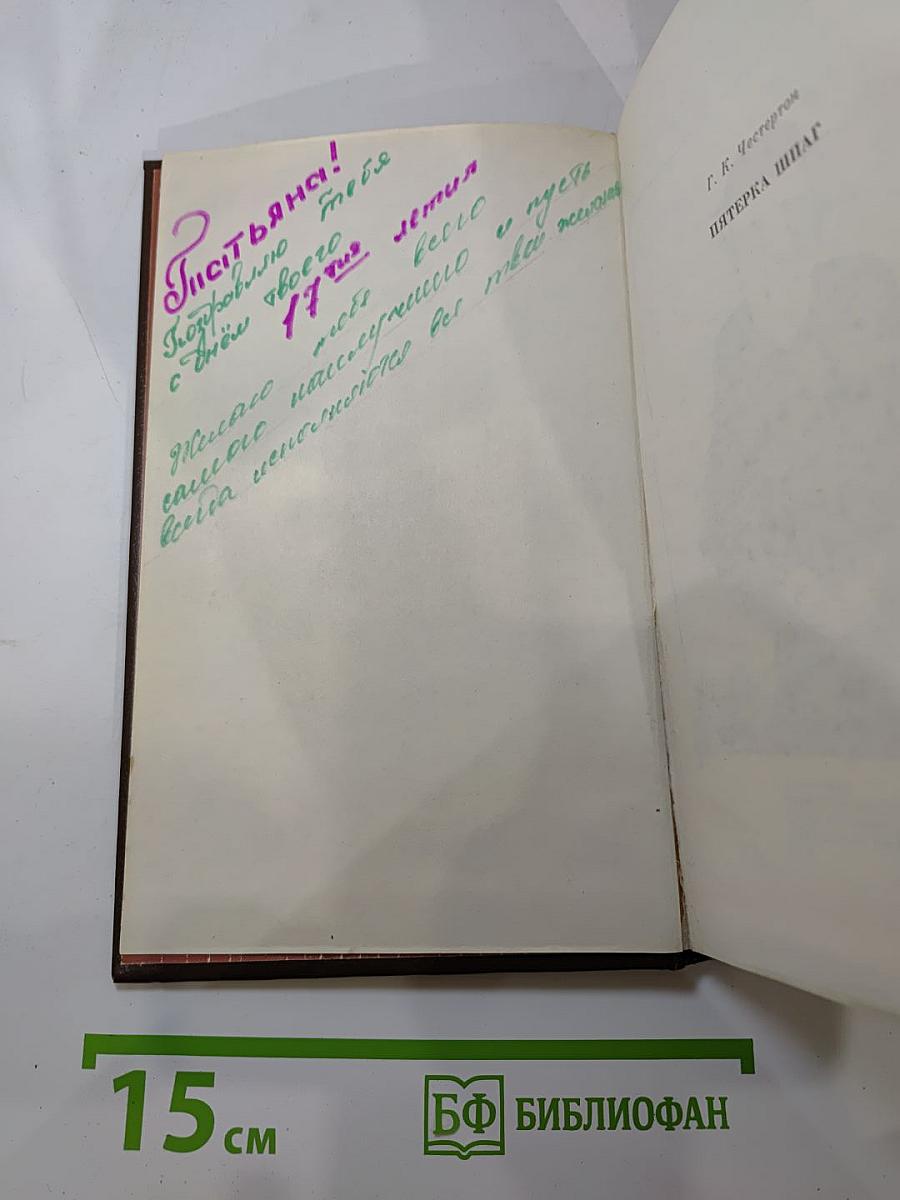 Татьяна!
Поздровляю тебя
с днём твоего
17тия летия
Желаю тебе всего
самого наилучшего и пусть
всегда исполняются все твои желания
Г. К. Честертон
ПЯТЕРКА ШПАГ
15 см
БФ БИБЛИОФАН